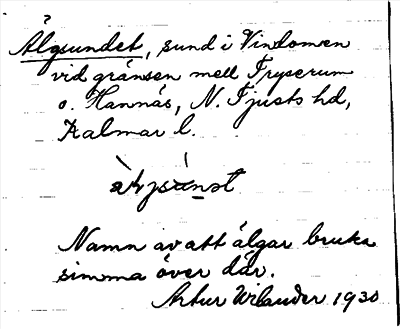 Älgsundet, sund i Vindommen
vid gränsen mell Tryserum
o. Hannäs, N. Tjusts hd,
Kalmar l.
Namn av att älgar bruka
simma över där.
Artur Wilander 1930